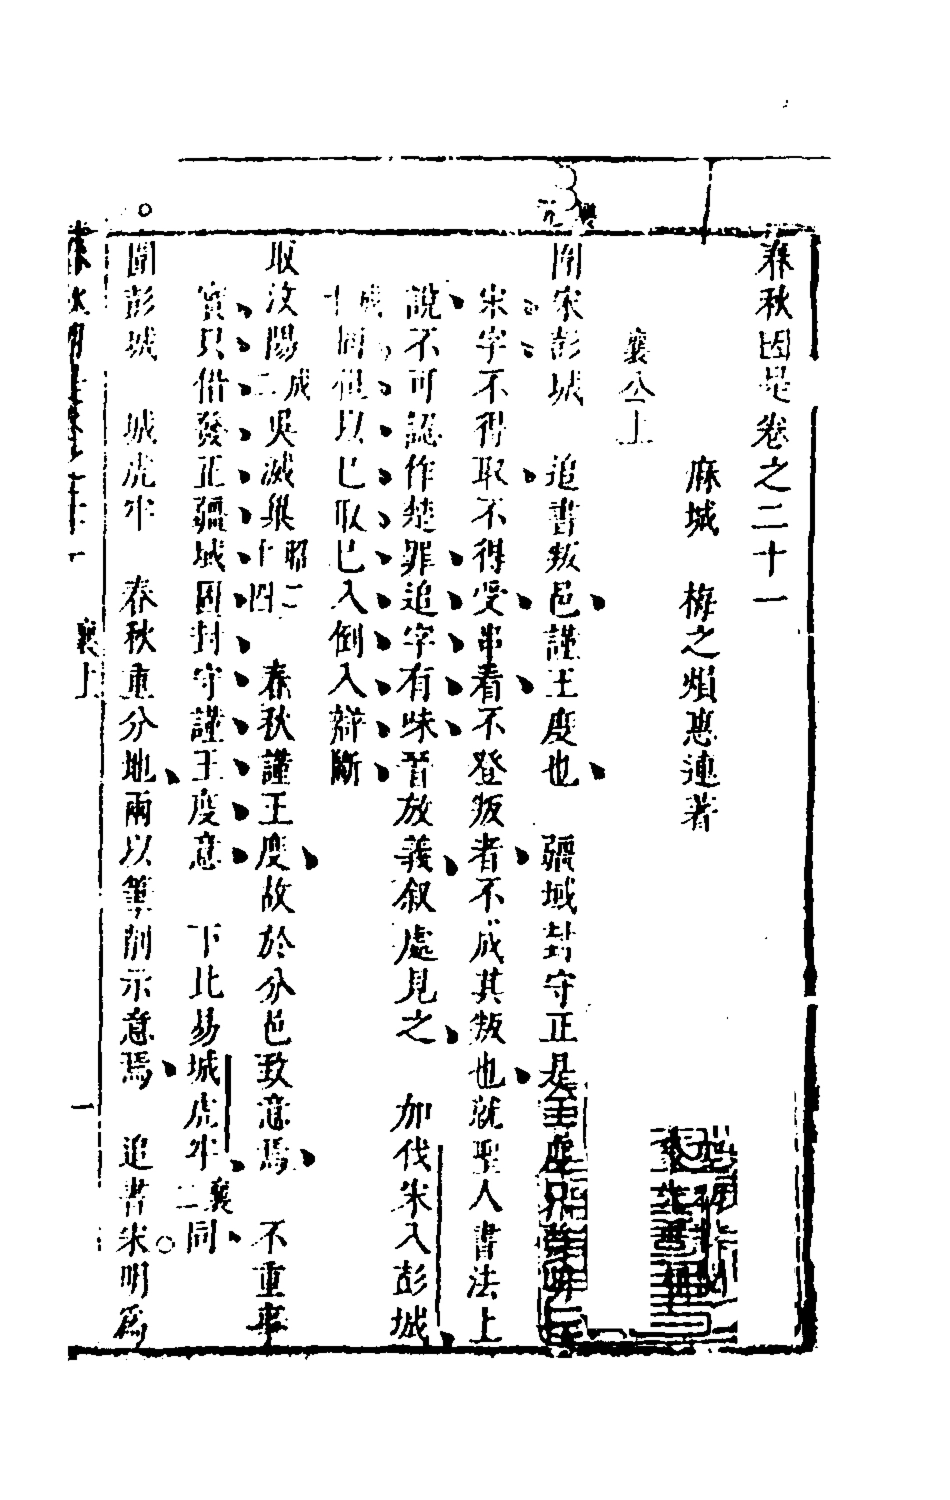 春秋因是卷之二十一
麻城　梅之熉惠連著
襄公上
襄元
圍宋彭城　追書叛邑謹王度也　疆域封守正是王度只發明
宋字不得取不得受串看不登叛者不成其叛也就聖人書法上
說不可認作楚罪追字有味晉放義叙處見之　加伐宋入彭城
成十同但以已取已入倒入辯斷
取汶陽成二吳滅巢昭二十四　春秋謹王度故於分邑致意焉　不重事
實只借發正疆域固封守謹王度意　下比易城虎牢襄二同
圍彭城　城虎牢　春秋重分地兩以筆削示意焉　追書宋明爲
襄上
一